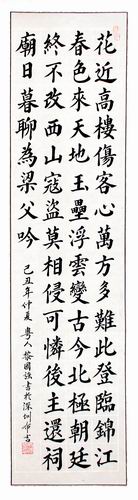 花近高樓傷客心萬方多難此登臨錦江
春色來天地玉壘浮雲變古今北極朝廷
終不改西山寇盜莫相侵可憐後主還祠
廟日暮聊為梁父吟
己丑年仲夏粵人黎國強書於深圳布吉